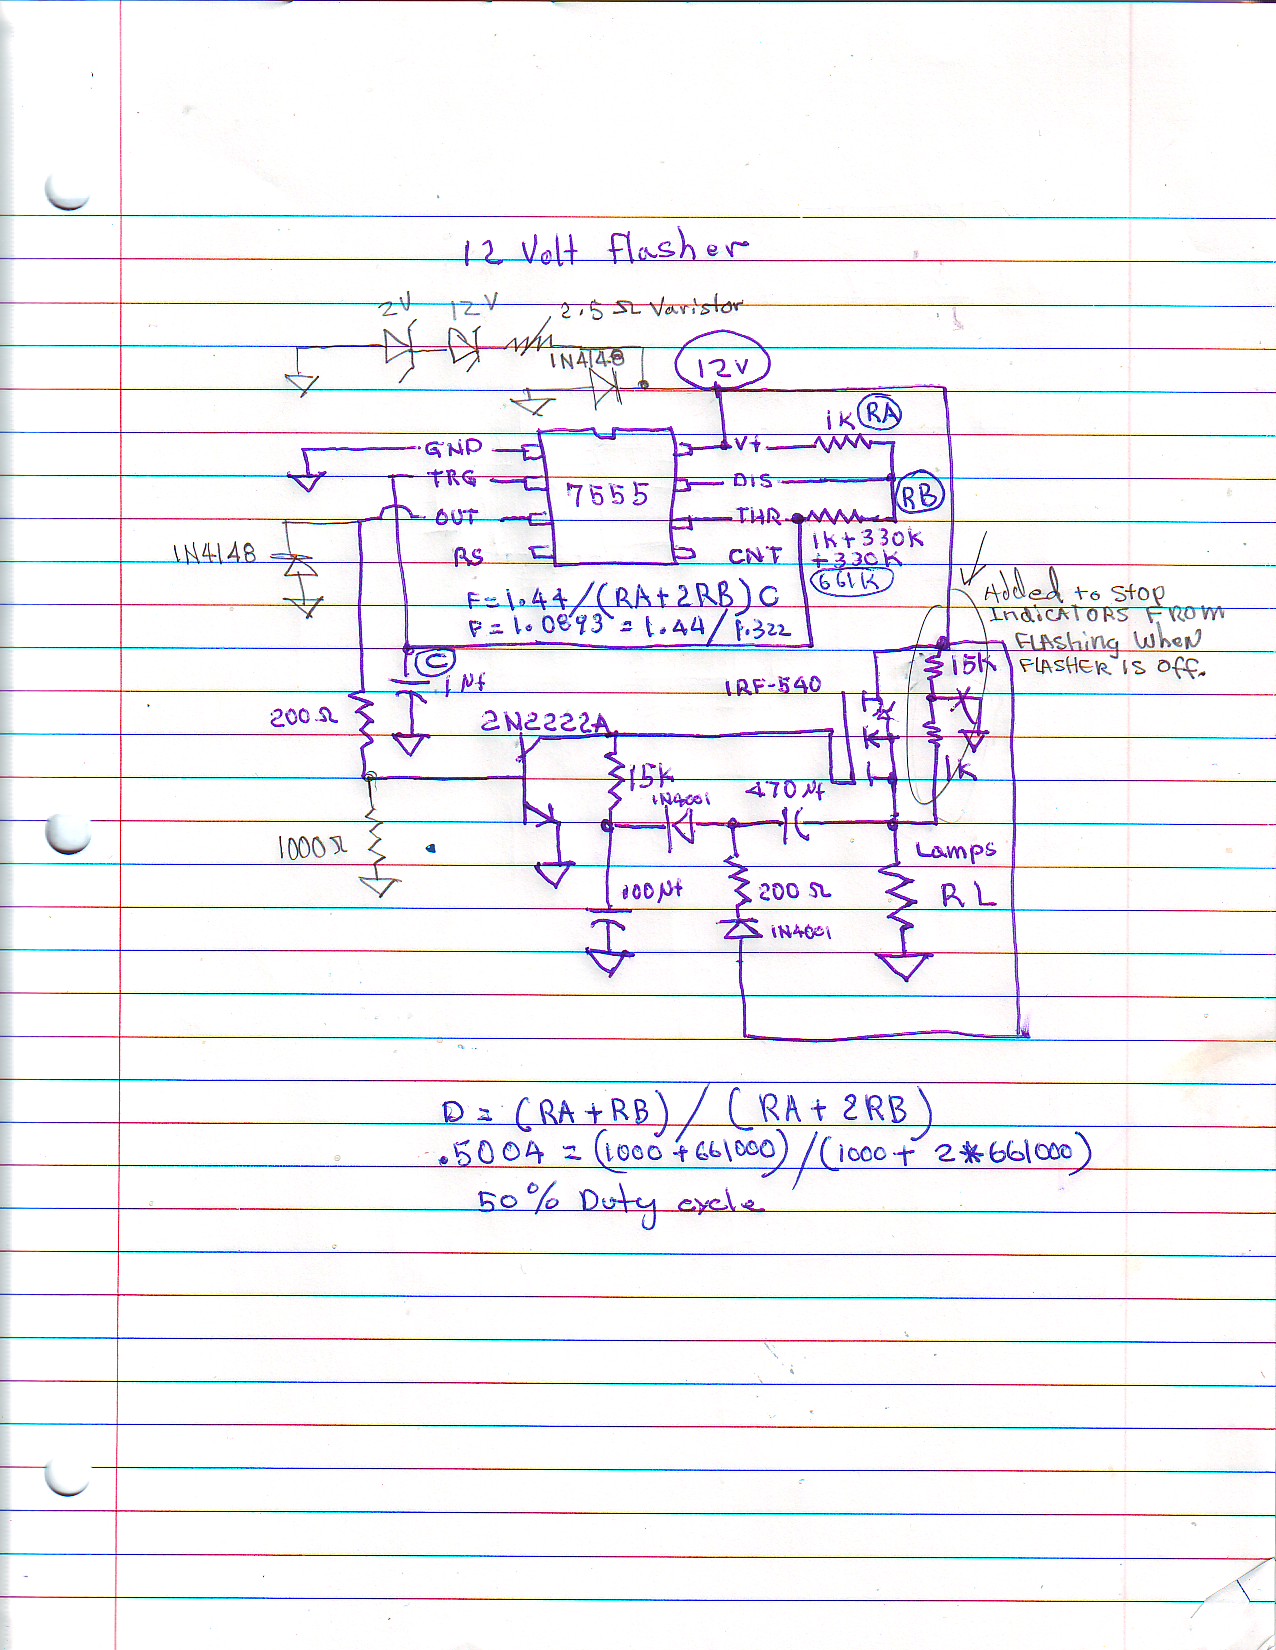 12 Volt flasher
2V 12V 2.5 Ω Varistor
1N4148
12V
1K RA
GND V+
TRG 7555 DIS
RB
OUT THR
1N4148
RS CNT
1K+330K
+330K
661K
F=1.44/(RA+2RB)C
F=1.0893=1.44/1.322
Added to stop
Indicators From
Flashing When
Flasher is off.
C
1 µf
15K
IRF-540
200Ω
2N2222A
15K
1K
1N4001
470 µf
1000Ω
Lamps
RL
100µf
200 Ω
1N4001
D = (RA+RB)/(RA+2RB)
.5004 = (1000+661000)/(1000+2*661000)
50% Duty cycle